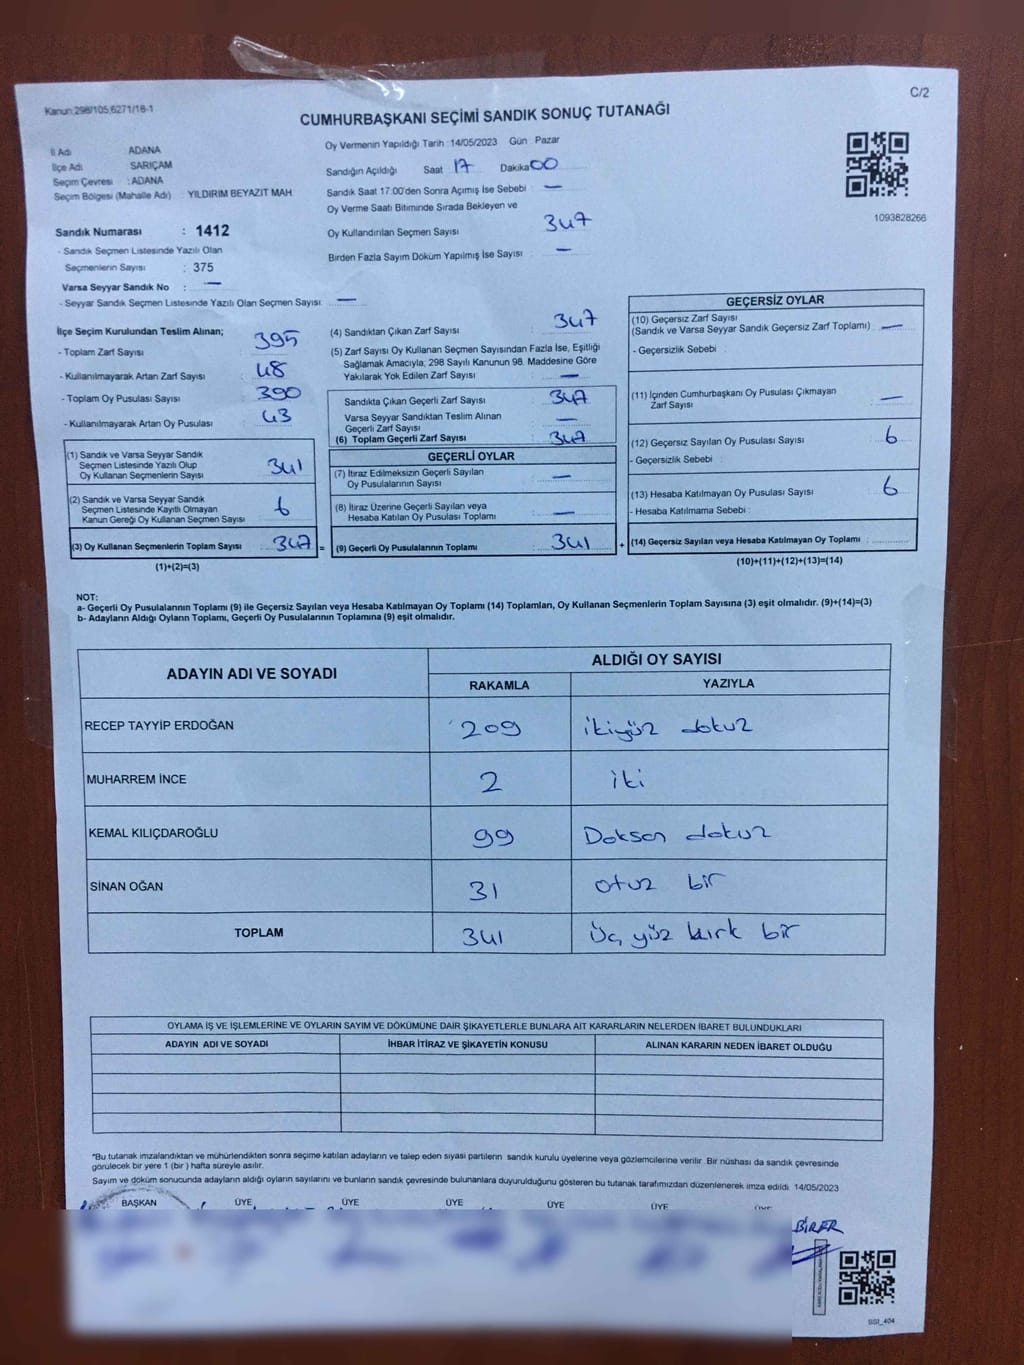 Kanun:298/105;6271/18-1
C/2
CUMHURBAŞKANI SEÇİMİ SANDIK SONUÇ TUTANAĞI
İl Adı ADANA
İlçe Adı SARIÇAM
Seçim Çevresi : ADANA
Seçim Bölgesi (Mahalle Adı) : YILDIRIM BEYAZIT MAH
Sandık Numarası : 1412
- Sandık Seçmen Listesinde Yazılı Olan
Seçmenlerin Sayısı : 375
Varsa Seyyar Sandık No : —
- Seyyar Sandık Seçmen Listesinde Yazılı Olan Seçmen Sayısı —
Oy Vermenin Yapıldığı Tarih :14/05/2023 Gün Pazar
Sandığın Açıldığı Saat 17 Dakika 00
Sandık Saat 17:00'den Sonra Açılmış İse Sebebi : —
Oy Verme Saati Bitiminde Sırada Bekleyen ve
Oy Kullandırılan Seçmen Sayısı : 347
Birden Fazla Sayım Döküm Yapılmış İse Sayısı : —
1093828266
İlçe Seçim Kurulundan Teslim Alınan;
- Toplam Zarf Sayısı : 395
- Kullanılmayarak Artan Zarf Sayısı : 48
- Toplam Oy Pusulası Sayısı : 390
- Kullanılmayarak Artan Oy Pusulası : 43
(1) Sandık ve Varsa Seyyar Sandık
Seçmen Listesinde Yazılı Olup
Oy Kullanan Seçmenlerin Sayısı : 341
(2) Sandık ve Varsa Seyyar Sandık
Seçmen Listesinde Kayıtlı Olmayan
Kanun Gereği Oy Kullanan Seçmen Sayısı : 6
(3) Oy Kullanan Seçmenlerin Toplam Sayısı : 347 =
(1)+(2)=(3)
(4) Sandıktan Çıkan Zarf Sayısı : 347
(5) Zarf Sayısı Oy Kullanan Seçmen Sayısından Fazla İse, Eşitliği
Sağlamak Amacıyla, 298 Sayılı Kanunun 98. Maddesine Göre
Yakılarak Yok Edilen Zarf Sayısı : —
Sandıkta Çıkan Geçerli Zarf Sayısı : 347
Varsa Seyyar Sandıktan Teslim Alınan
Geçerli Zarf Sayısı : —
(6) Toplam Geçerli Zarf Sayısı : 347
GEÇERLİ OYLAR
(7) İtiraz Edilmeksizin Geçerli Sayılan
Oy Pusulalarının Sayısı : —
(8) İtiraz Üzerine Geçerli Sayılan veya
Hesaba Katılan Oy Pusulası Toplamı : —
(9) Geçerli Oy Pusulalarının Toplamı : 341 +
GEÇERSİZ OYLAR
(10) Geçersiz Zarf Sayısı
(Sandık ve Varsa Seyyar Sandık Geçersiz Zarf Toplamı) : —
- Geçersizlik Sebebi :
(11) İçinden Cumhurbaşkanı Oy Pusulası Çıkmayan
Zarf Sayısı : —
(12) Geçersiz Sayılan Oy Pusulası Sayısı : 6
- Geçersizlik Sebebi :
(13) Hesaba Katılmayan Oy Pusulası Sayısı : 6
- Hesaba Katılmama Sebebi :
(14) Geçersiz Sayılan veya Hesaba Katılmayan Oy Toplamı :
(10)+(11)+(12)+(13)=(14)
NOT:
a- Geçerli Oy Pusulalarının Toplamı (9) ile Geçersiz Sayılan veya Hesaba Katılmayan Oy Toplamı (14) Toplamları, Oy Kullanan Seçmenlerin Toplam Sayısına (3) eşit olmalıdır. (9)+(14)=(3)
b- Adayların Aldığı Oyların Toplamı, Geçerli Oy Pusulalarının Toplamına (9) eşit olmalıdır.
ADAYIN ADI VE SOYADI ALDIĞI OY SAYISI
RAKAMLA YAZIYLA
RECEP TAYYİP ERDOĞAN 209 ikiyüz dokuz
MUHARREM İNCE 2 iki
KEMAL KILIÇDAROĞLU 99 Doksan dokuz
SİNAN OĞAN 31 otuz bir
TOPLAM 341 Üç yüz kırk bir
OYLAMA İŞ VE İŞLEMLERİNE VE OYLARIN SAYIM VE DÖKÜMÜNE DAİR ŞİKAYETLERLE BUNLARA AİT KARARLARIN NELERDEN İBARET BULUNDUKLARI
ADAYIN ADI VE SOYADI İHBAR İTİRAZ VE ŞİKAYETİN KONUSU ALINAN KARARIN NEDEN İBARET OLDUĞU
"Bu tutanak imzalandıktan ve mühürlendikten sonra seçime katılan adayların ve talep eden siyasi partilerin sandık kurulu üyelerine veya gözlemcilerine verilir. Bir nüshası da sandık çevresinde
görülecek bir yere 1 (bir ) hafta süreyle asılır.
Sayım ve döküm sonucunda adayların aldığı oyların sayılarını ve bunların sandık çevresinde bulunanlara duyurulduğunu gösteren bu tutanak tarafımızdan düzenlenerek imza edildi. 14/05/2023
BAŞKAN ÜYE ÜYE ÜYE ÜYE ÜYE ÜYE
BİRER
SSI_404